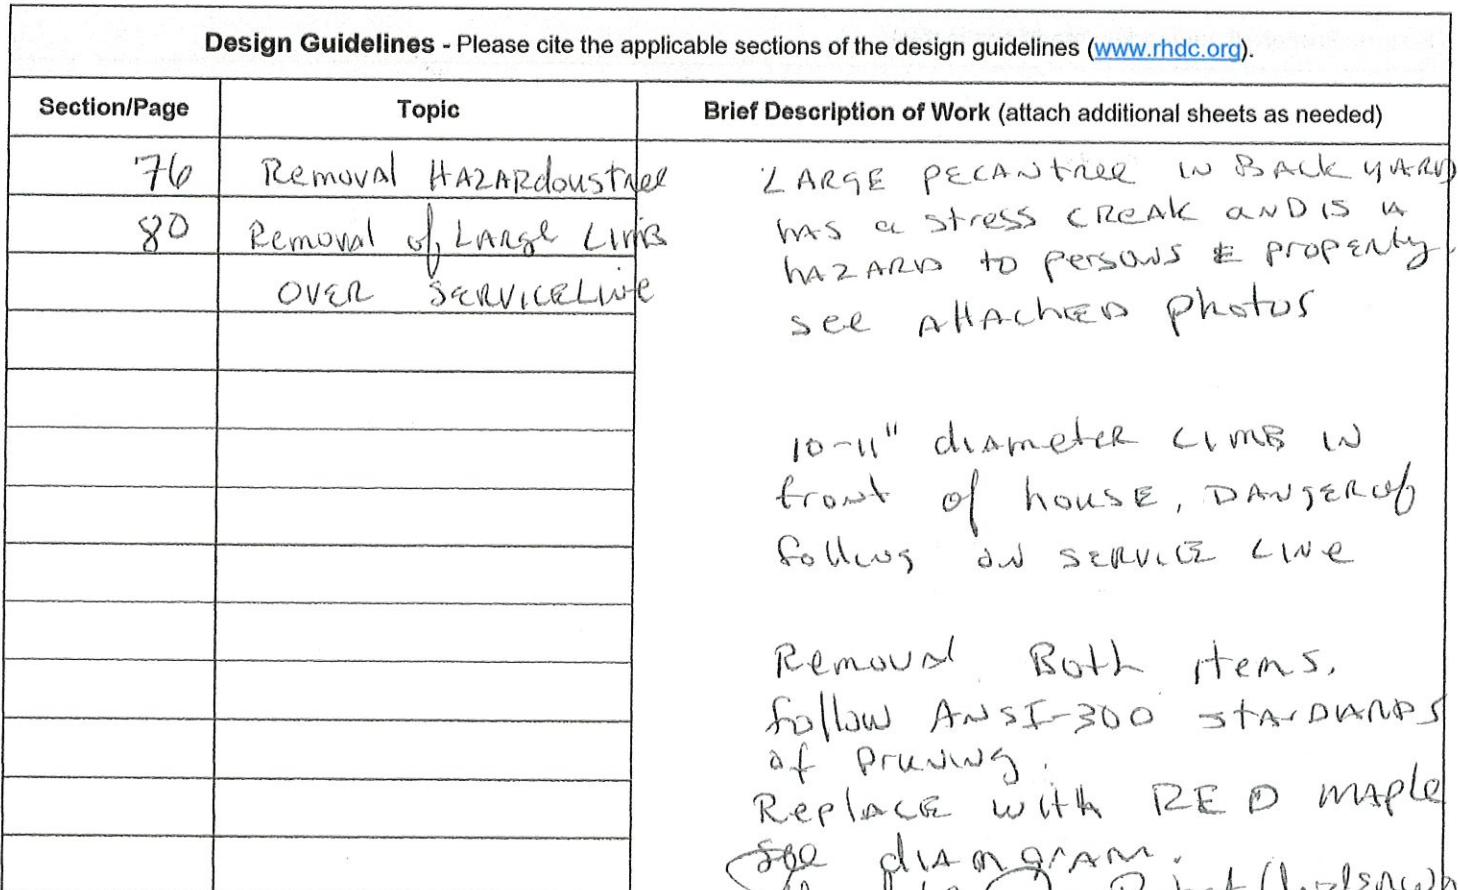 Design Guidelines - Please cite the applicable sections of the design guidelines (www.rhdc.org).
Section/Page Topic Brief Description of Work (attach additional sheets as needed)
76 Removal HAZARdous tree
80 Removal of LARge Limb
OVER SERVICE LINE
LARGE PECAN tree IN BACK YARD
has a stress CREAK AND IS A
HAZARD to persons & property.
see AttACHED photos
10-11" diameter LIMB IN
front of house, DANGER of
falling on SERVICE LINE
Removal Both items,
follow ANSI-300 STANDARDS
of PRUNING.
Replace with RED maple
see diamgram.